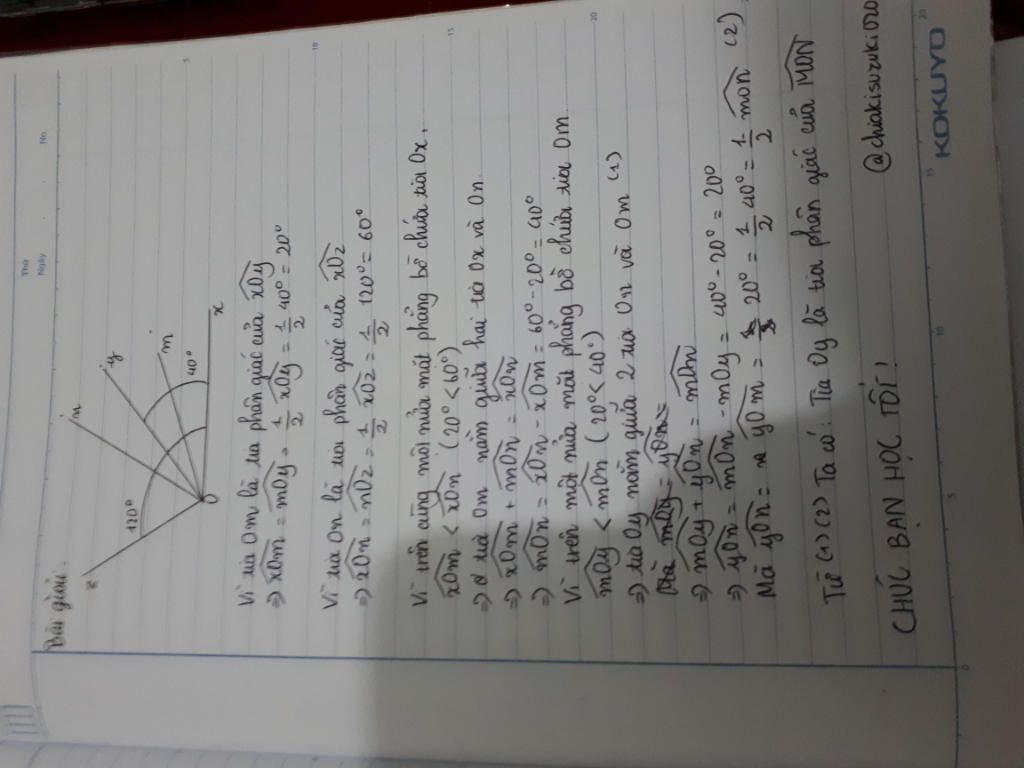 Thứ
Ngày
No.
Bài giải:
z
n
y
m
x
O
120°
40°
Vì tia Om là tia phân giác của xOy
=> xOm = mOy = 1/2 xOy = 1/2 40° = 20°
Vì tia On là tia phân giác của xOz
=> xOn = nOz = 1/2 xOz = 1/2 120° = 60°
Vì trên cùng một nửa mặt phẳng bờ chứa tia Ox,
xOm < xOn (20° < 60°)
=> tia Om nằm giữa hai tia Ox và On.
=> xOm + mOn = xOn
=> mOn = xOn - xOm = 60° - 20° = 40°
Vì trên một nửa mặt phẳng bờ chứa tia Om.
mOy < mOn (20° < 40°)
=> tia Oy nằm giữa 2 tia On và Om (1)
=> mOy + yOn = mOn
=> yOn = mOn - mOy = 40° - 20° = 20°
Mà yOn = yOm = 20° = 1/2 40° = 1/2 mOn (2)
Từ (1) (2) Ta có: Tia Oy là tia phân giác của MON
CHÚC BẠN HỌC TỐT!
@chiakisuzuki020
KOKUYO
0
5
10
15
20
5
10
15
20